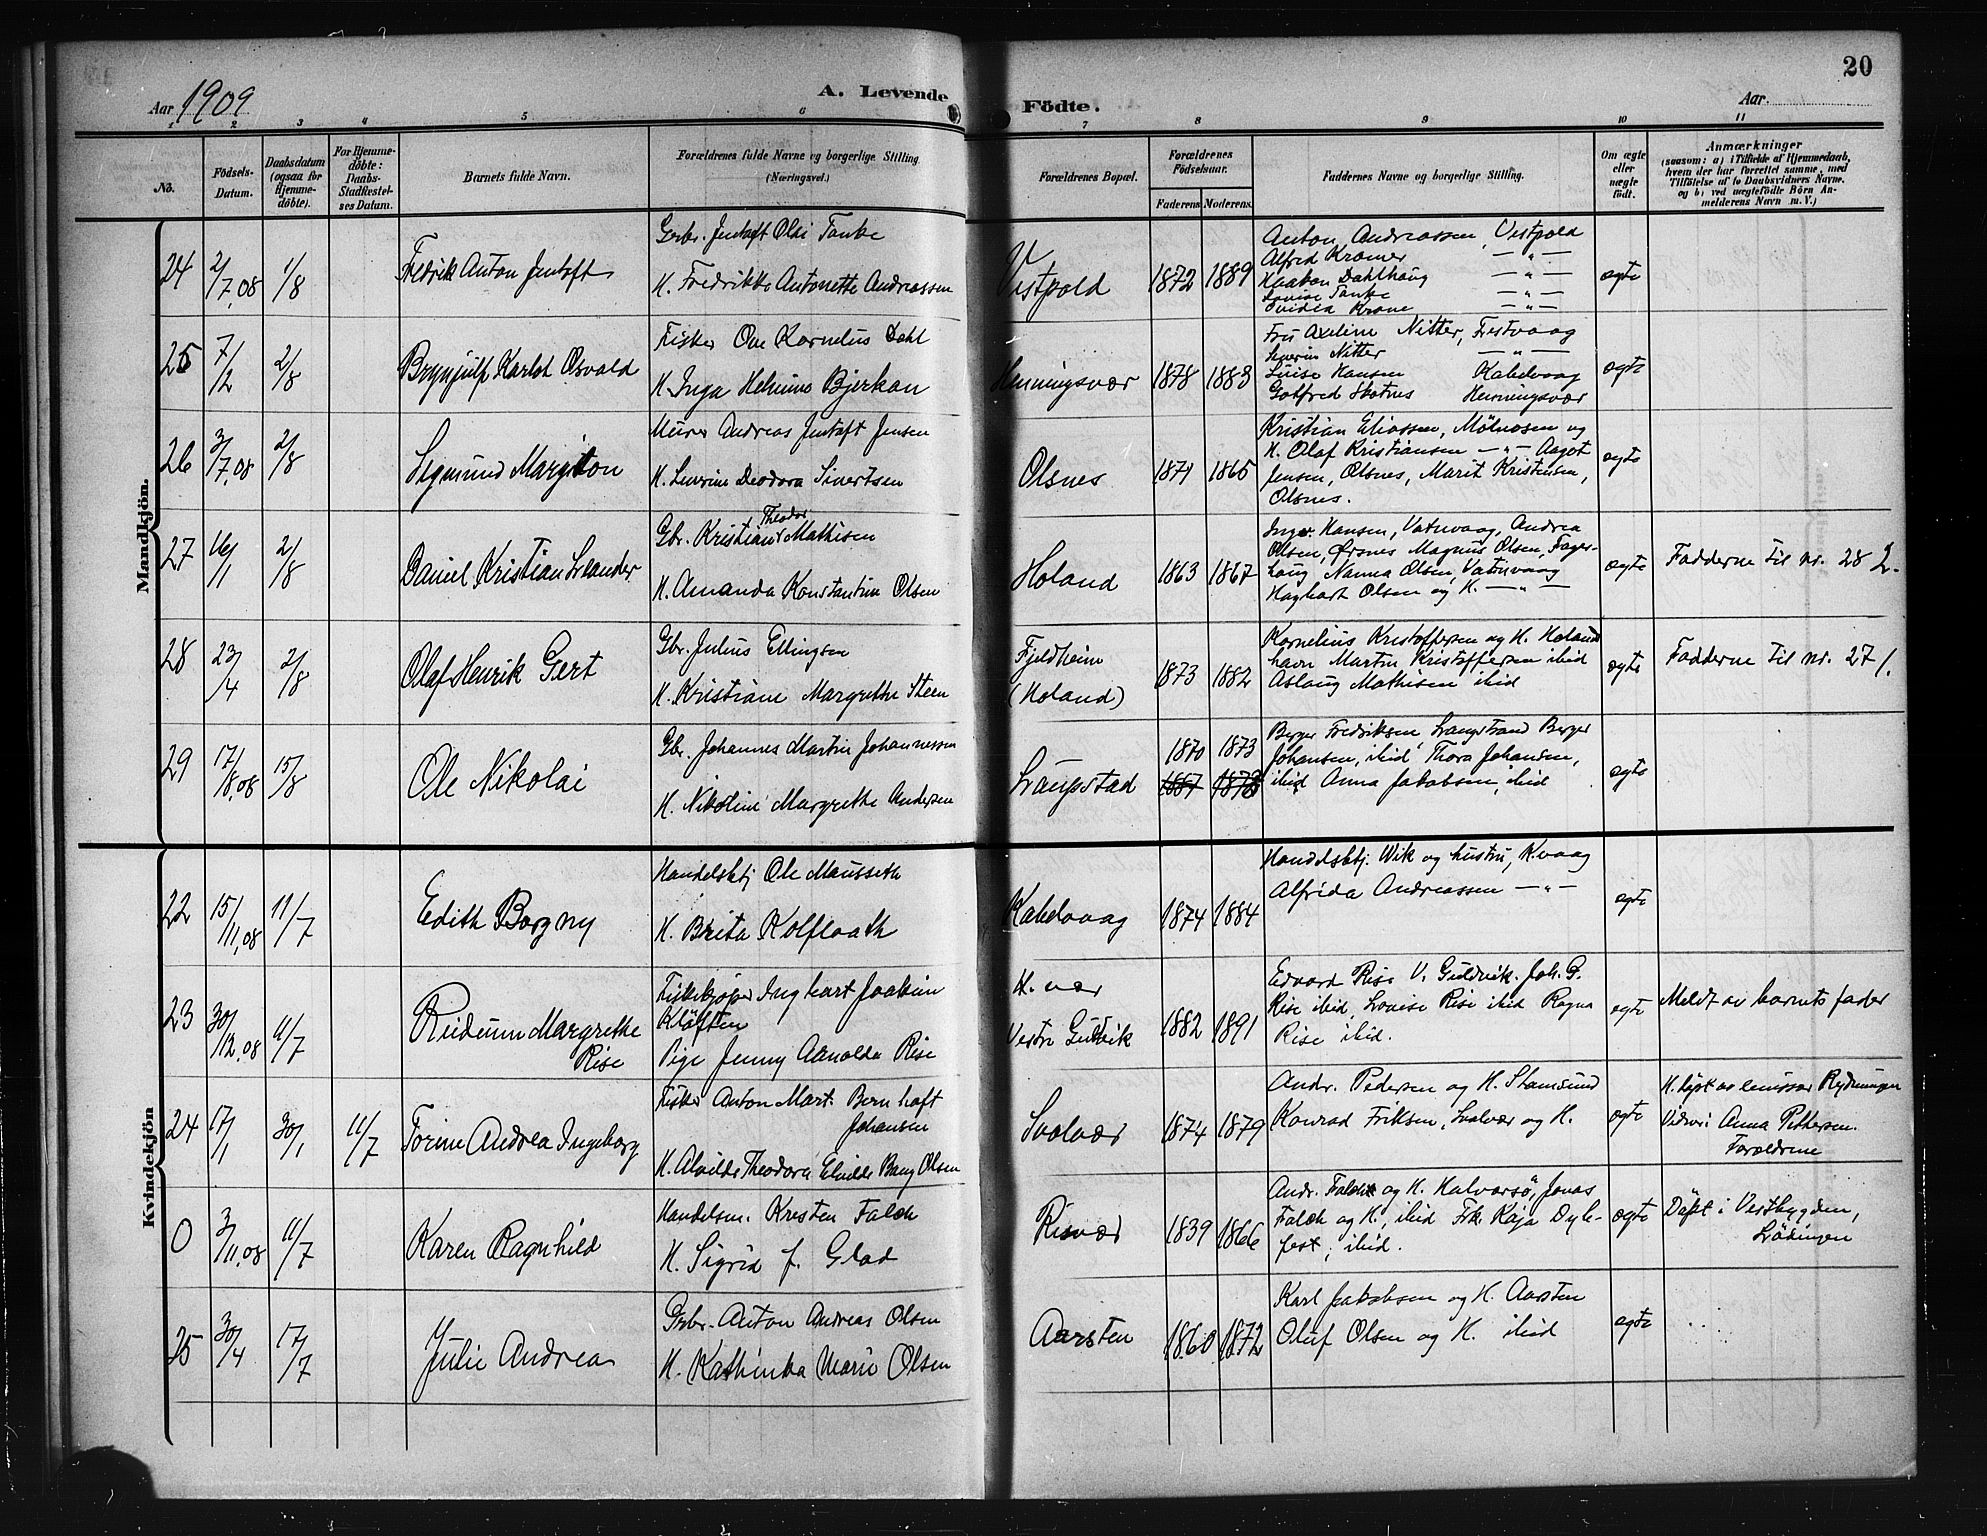 20
Aar 1909
A. Levende
Födte.
Aar.
1 2 3 4 5 6 7 8 9 10 11
No.
Födsels-
Datum.
Daabsdatum
(ogsaa for
Hjemme-
döbte).
For Hjemme-
döbte:
Daabs-
Stadfæstel-
ses Datum.
Barnets fulde Navn.
Forældrenes fulde Navne og borgerlige Stilling.
(Næringsvei.)
Forældrenes Bopæl.
Forældrenes
Födselsaar.
Faderens Moderens
Faddernes Navne og borgerlige Stilling.
Om ægte
eller
uægte
födt.
Anmærkninger
(saasom: a) i Tilfælde af Hjemmedaab,
hvem der har forrettet samme, med
Tilföielse af to Daabsvidners Navne.
og b) ved uægtefödte Börn An-
melderens Navn m. V.)
Mandkjön.
24 2/7.08 1/8 Fredrik Anton Jentoft
Grbr. Jentoft Olai Tanke
H. Fredrikke Antonette Andreassen
Vestpold 1872 1889
Anton Andreassen, Vestpold
Alfred Kromer —"—
Haakon Dahlhaug —"—
Lovise Tanke —"—
Ovidia Krane —"—
ægte
25 7/2 2/8 Brynjulf Karlot Osvald
Fisker Ove Kornelius Dahl
H. Inga Helmine Bjerkan
Henningsvær 1878 1883
Fru Axeline Nitter, Festvaag
Severin Nitter —"—
Luise Hansen Kabelvaag
Gotfred Skotnes Henningsvær
ægte
26 3/7.08 2/8 Sigmund Margiton
Murer Andreas Jentoft Jensen
H. Severine Deodora Sivertsen
Olsnes 1871 1865
Kristian Eliassen, Mölnosen og
H. Olaf Kristiansen —"— Aagot
Jensen, Olsnes, Marit Kristensen,
Olsnes.
ægte
27 16/1 2/8 Daniel Kristian Leander
Theodor
Gbr. Kristian Mathisen
H. Amanda Konstantine Olsen
Holand 1863 1867
Inger Hansen, Vatnvaag, Andrea
Olsen, Ørsnes Magnus Olsen, Fager-
haug, Nanna Olsen, Vatnvaag
Hagbart Olsen og H. —"—
ægte
Fadderne til nr. 28 2.
28 23/4 2/8 Olaf Henrik Gert
Gbr. Julius Ellingsen
H. Kristiane Margrethe Steen
Fjeldheim
(Holand)
1873 1882
Kornelius Kristoffersen og H. Holands
havn Martin Kristoffersen ibid
Aslaug Mathisen ibid
ægte
Fadderne til nr. 27 1.
29 17/8.08 15/8 Ole Nikolai
Gbr. Johannes Martin Johannessen
H. Nikoline Margrethe Andersen
Laupstad
1870 1873
1867 1873
Berger Fredriksen Langstrand Berger
Johansen, ibid, Thora Johansen,
ibid Anna Jakobsen, ibid
ægte
Kvindekjön
22 15/11.08 11/7 Edith Borgny
Handelsbtj Ole Mausseth
H. Brita Kolflaath
Kabelvaag 1874 1884
Handelsbtj. Wik og hustru, K.vaag
Alfrida Andreassen —"—
ægte
23 30/12.08 11/7 Reidunn Margrethe
Rise
Fiskekjöper Inghart Joakim
Kløften
Pige Jenny Arnolda Rise
H. vær
Vestre Gulvik
1882 1891
Edvard Rise V. Guldvik. Joh. G.
Rise ibid, Lovise Rise ibid Ragna
Rise ibid.
ægte
Meldt av barnets fader
24 17/1 30/1 11/7 Torine Andrea Ingeborg
Fisker Anton Mart. Bernhoft
Johansen
H. Alvilde Theodora Elvilde Bang Olsen
Svolvær 1874 1879
Andr. Pedersen og H. Stamsund
Konrad Eriksen, Svolvær og H.
ægte
H. döpt av emissær Rydningen
Vidner: Anna Pettersen.
Forældrene
0 3/11.08 11/7 Karen Ragnhild
Handelsm. Kresten Falch
H. Sigrid f. Glad
Risvær 1839 1866
Andr. Falch og H. Halvarsö, Jonas
Falch og H., ibid Frk. Kaja Dybe-
fest, ibid.
ægte
Döpt i Vestbygden,
Lödingen
25 30/4 17/7 Julie Andrea
Grbr. Anton Andreas Olsen
H. Kathinka Marie Olsen
Aarsten 1860 1872
Karl Jakobsen og H. Aarsten
Oluf Olsen og H. ibid
ægte